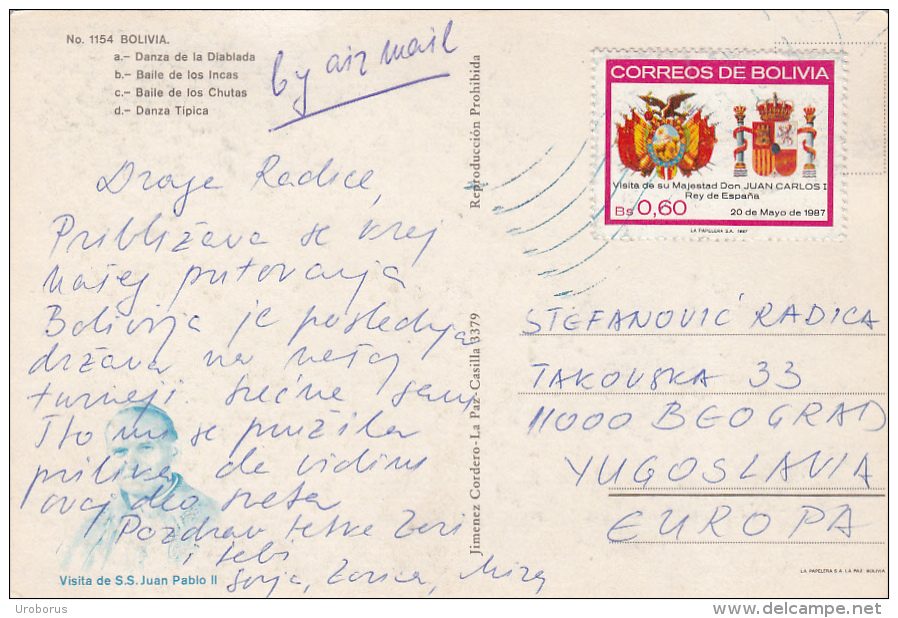 No. 1154 BOLIVIA.
a.- Danza de la Diablada
b.- Baile de los Incas
c.- Baile de los Chutas
d.- Danza Típica
by air mail
Drage Radice,
Približava se kraj
našeg putovanja
Bolivija je poslednja
država na našoj
turneji. Srećne smo
što nam se pružila
prilika da vidimo
ovaj deo sveta
Pozdrav tetke Zori
i tebi
Zorica, Mira
Visita de S.S. Juan Pablo II
Jimenez Cordero-La Paz-Casilla 3379
Reproducción Prohibida
CORREOS DE BOLIVIA
Visita de su Majestad Don JUAN CARLOS I
Rey de España
Bs 0,60 20 de Mayo de 1987
LA PAPELERA S.A. 1987
STEFANOVIĆ RADICA
TAKOVSKA 33
11000 BEOGRAD
YUGOSLAVIA
EUROPA
LA PAPELERA S.A. LA PAZ BOLIVIA
Uroborus
www.delcampe.net